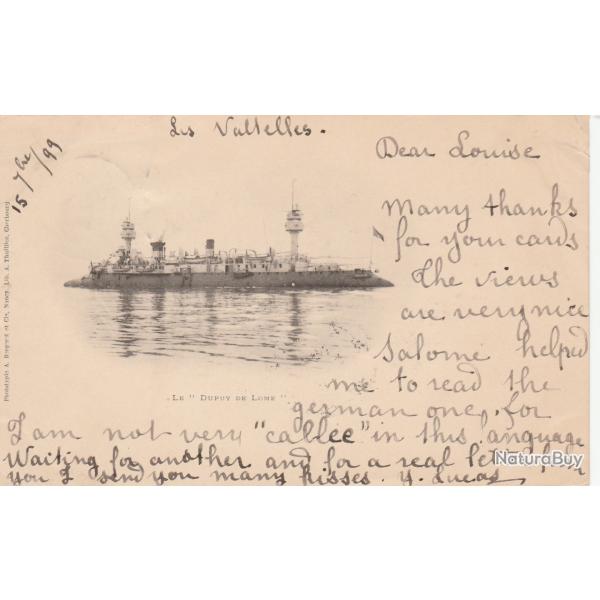 Les Valtelles.
15 7bre/99
Dear Louise
Many thanks
for your cards
The views
are very nice
Salome helped
me to read the
german one, for
I am not very "callée" in this language
Waiting for another and for a real letter from
you I send you many kisses. Y. Lucas
LE "DUPUY DE LOME"
Phototypie A. Bergeret et Cie, Nancy. Lib. A. Cherbourg
NaturaBuy